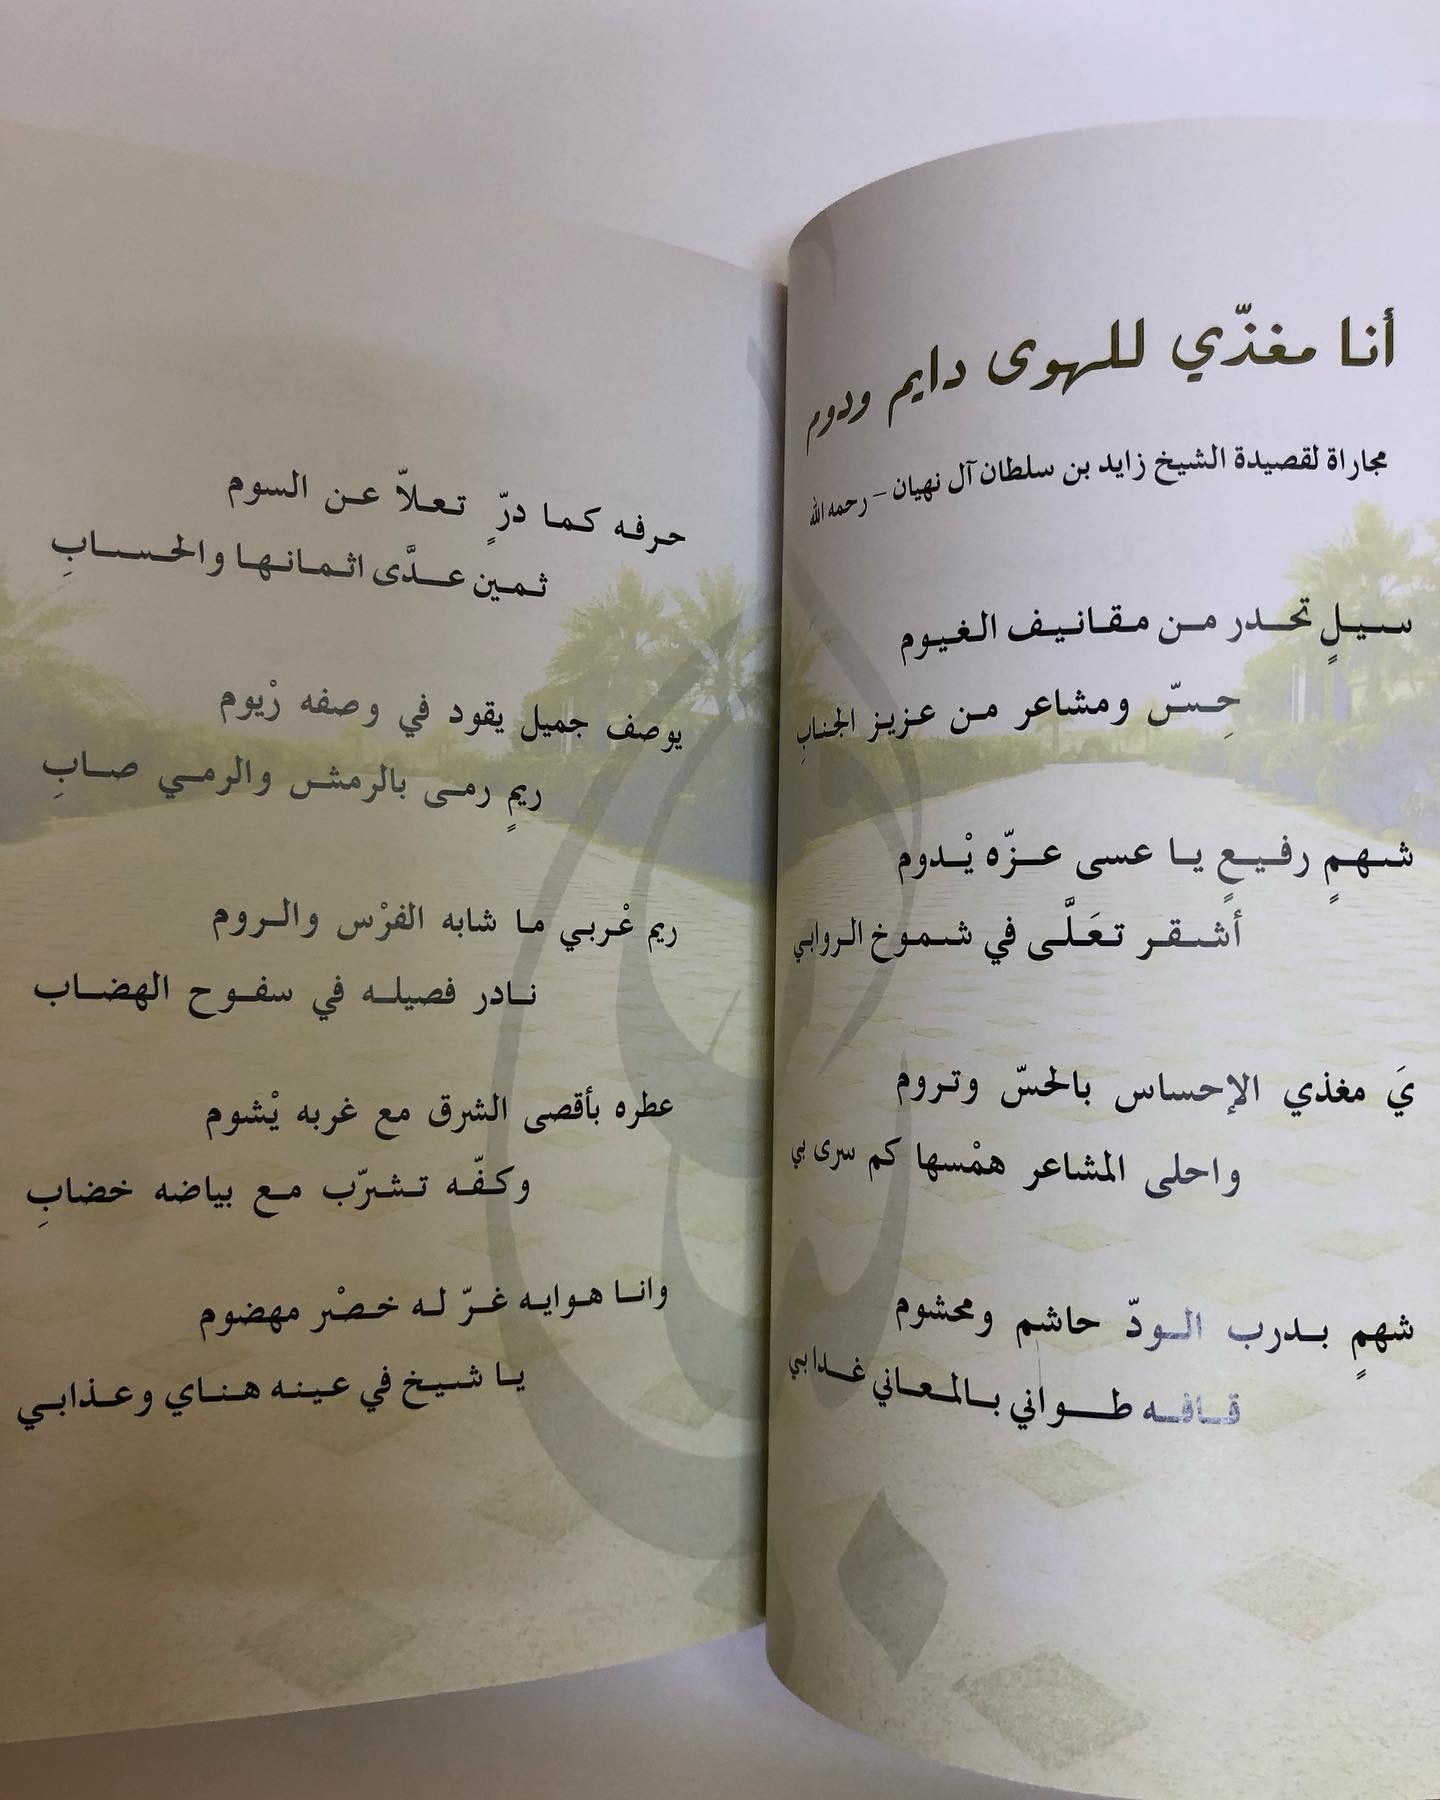 أنا مغذّي للهوى دايم ودوم
مجاراة لقصيدة الشيخ زايد بن سلطان آل نهيان – رحمه الله
سيلٍ تحدر من مقانيف الغيوم
حِسّ ومشاعر من عزيز الجنابِ
شهمٍ رفيعٍ يا عسى عزّه يْدوم
أشقر تعَلَّى في شموخ الروابي
يَ مغذي الإحساس بالحسّ وتروم
واحلى المشاعر همْسها كم سرى بي
شهمٍ بدرب الودّ حاشم ومحشوم
قافه طواني بالمعاني غدا بي
حرفه كما درٍّ تعلاّ عن السوم
ثمين عدَّى اثمانها والحسابِ
يوصف جميل يقود في وصفه رْيوم
ريمٍ رمى بالرمش والرمي صابِ
ريم عْربي ما شابه الفرْس والروم
نادر فصيله في سفوح الهضاب
عطره بأقصى الشرق مع غربه يْشوم
وكفّه تشرّب مع بياضه خضابِ
وانا هوايه غرّ له خصْر مهضوم
يا شيخ في عينه هناي وعذابي